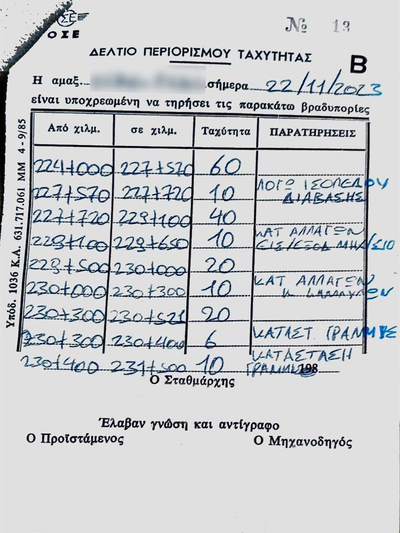 ΟΣΕ
№ 13
ΔΕΛΤΙΟ ΠΕΡΙΟΡΙΣΜΟΥ ΤΑΧΥΤΗΤΑΣ
Β
Η αμαξ. σήμερα 22/11/2023
είναι υποχρεωμένη να τηρήσει τις παρακάτω βραδυπορίες
Από χιλμ. σε χιλμ. Ταχύτητα ΠΑΡΑΤΗΡΗΣΕΙΣ
224+000 227+570 60
227+570 227+720 10 ΛΟΓΩ ΙΣΟΠΕΔΟΥ ΔΙΑΒΑΣΗΣ
227+720 228+100 40
228+100 228+650 10 ΚΑΤ ΑΛΛΑΓΩΝ ΕΙΣ/ΕΞΟΔ
228+500 230+000 20
230+000 230+300 10 ΚΑΤ ΑΛΛΑΓΩΝ
230+300 230+521 20
230+300 230+400 6 ΚΑΤΑΣΤ. ΓΡΑΜΜΗΣ
230+400 231+500 10 ΚΑΤΑΣΤΑΣΗ ΓΡΑΜΜΗΣ
198
Ο Σταθμάρχης
Έλαβαν γνώση και αντίγραφο
Ο Προϊστάμενος Ο Μηχανοδηγός
Υπόδ. 1036 Κ.Α. 631.717.061 ΜΜ 4-9/85